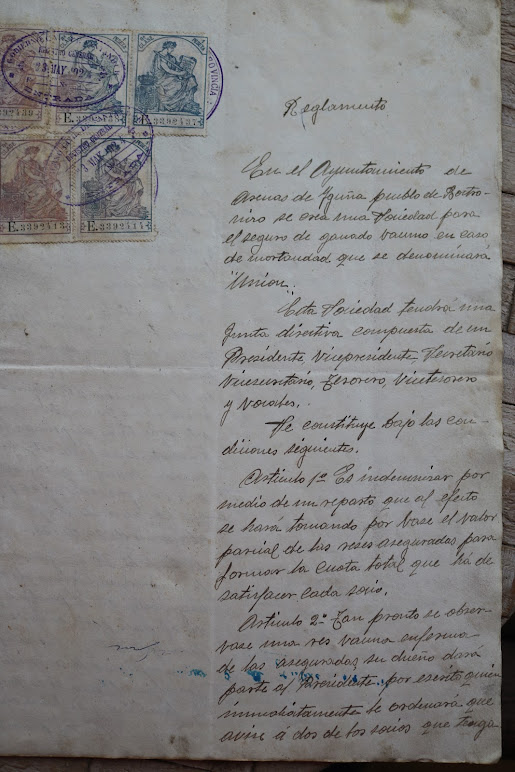 ENTRADA
E.3392438
E.3392437
E.3392413
E.3392411
Reglamento
En el Ayuntamiento de
Arenas de Iguña pueblo de Bostro-
nizo se crea una Sociedad para
el seguro de ganado vacuno en caso
de mortandad que se denominará
"Unión".
Esta Sociedad tendrá una
Junta directiva compuesta de un
Presidente, Vicepresidente, Secretario
Vicesecretario, Tesorero, Vicetesorero
y Vocales.
Se constituye bajo las con-
diciones siguientes.
Artículo 1º Es indemnizar por
medio de un reparto que al efecto
se hará tomando por base el valor
parcial de las reses aseguradas para
formar la cuota total que há de
satisfacer cada socio.
Artículo 2º Tan pronto se obser-
vase una res vacuna enferma
de las aseguradas, su dueño dará
parte al Presidente por escrito quien
inmediatamente le ordenará que
avise á dos de los socios que tenga